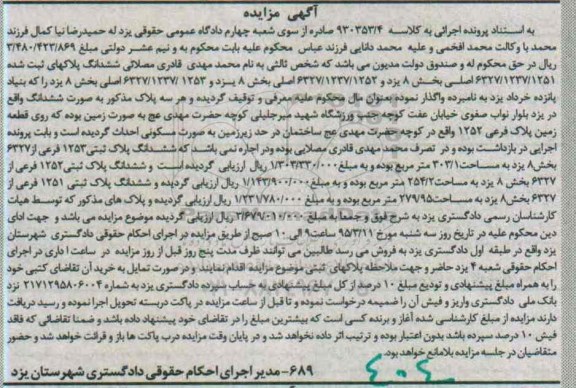 آگهی مزایده
به استناد پرونده اجرائی به کلاسه ۹۳۰۳۵۳/۴ صادره از سوی شعبه چهارم دادگاه عمومی حقوقی یزد له حمیدرضا نیا کمال فرزند
محمد با وکالت محمد افخمی و علیه محمد دانایی فرزند عباس محکوم علیه بابت محکوم به و نیم عشر دولتی مبلغ ۳/۴۸۰/۴۲۳/۸۶۹
ریال در حق محکوم له و صندوق دولت مدیون می باشد که شخص ثالثی به نام محمد مهدی قادری مصلائی ششدانگ پلاکهای ثبت شده
۶۳۲۷/۱۲۳۷/۱۲۵۱ اصلی بخش ۸ یزد و ۶۳۲۷/۱۲۳۷/۱۲۵۲ اصلی بخش ۸ یزد و ۱۲۵۳ /۶۳۲۷/۱۲۳۷ اصلی بخش ۸ یزد را که بنیاد
پانزده خرداد یزد به نامبرده واگذار نموده بعنوان مال محکوم علیه معرفی و توقیف گردیده و هر سه پلاک مذکور به صورت ششدانگ واقع
در یزد بلوار نواب صفوی خیابان عفت کوچه جنب ورزشگاه شهید میرجلیلی کوچه حضرت مهدی عج به صورت زمین بوده که روی قطعه
زمین پلاک فرعی ۱۲۵۲ واقع در کوچه حضرت مهدی عج ساختمان در حد زیرزمین به صورت مسکونی احداث گردیده است و بابت پرونده
اجرایی در بازداشت بوده و در تصرف محمد مهدی قادری مصلایی بوده ودر اجاره نمی باشد که ششدانگ پلاک ثبتی ۱۲۵۳ فرعی از ۶۳۲۷
بخش ۸ یزد به مساحت ۳۰۳/۱ متر مربع بوده و به مبلغ ۱/۳۰۳/۳۳۰/۰۰۰ ریال ارزیابی گردیده است و ششدانگ پلاک ثبتی ۱۲۵۲ فرعی از
۶۳۲۷ بخش ۸ یزد به مساحت ۲۵۴/۲ متر مربع بوده و به مبلغ ۱/۱۴۳/۹۰۰/۰۰۰ ریال ارزیابی گردیده و ششدانگ پلاک ثبتی ۱۲۵۱ فرعی از
۶۳۲۷ بخش ۸ یزد به مساحت ۲۷۹/۹۵ متر مربع بوده و به مبلغ ۱/۲۳۱/۷۸۰/۰۰۰ ریال ارزیابی گردیده و پلاک های مذکور که توسط هیات
کارشناسان رسمی دادگستری یزد به شرح فوق و جمعا به مبلغ ۳/۶۷۹/۰۱۰/۰۰۰ ریال ارزیابی گردیده موضوع مزایده می باشد و جهت ادای
دین محکوم علیه در تاریخ روز سه شنبه مورخ ۹۵/۳/۱۱ ساعت ۹ الی ۱۰ صبح از طریق مزایده در اجرای احکام حقوقی دادگستری شهرستان
یزد واقع در طبقه اول دادگستری یزد به فروش می رسد طالبین می توانند ظرف مدت پنج روز قبل از روز مزایده در ساعت اداری در اجرای
احکام حقوقی شعبه ۴ یزد حاضر و جهت ملاحظه پلاکهای ثبتی موضوع مزایده اقدام نمایند و در صورت تمایل به خرید آن تقاضای کتبی خود
را به همراه مبلغ پیشنهادی و تودیع مبلغ ۱۰ درصد از کل مبلغ پیشنهادی به حساب سپرده دادگستری یزد به شماره ۲۱۷۱۲۹۵۸۰۶۰۰۴ نزد
بانک ملی دادگستری واریز و فیش آن را ضمیمه درخواست نموده و تا قبل از ساعت مزایده در پاکت دربسته تحویل اجرا نموده و رسید دریافت
دارند مزایده از مبلغ کارشناسی شده آغاز و برنده کسی است که بیشترین مبلغ را در تقاضای خود پیشنهاد داده باشد و ضمنا تقاضائی که فاقد
فیش ۱۰ درصد سپرده باشد بدون اعتبار بوده و ترتیب اثر داده نخواهد شد و در پایان وقت مزایده درب پاکت ها باز و قرائت خواهد شد و حضور
متقاضیان در جلسه مزایده بلامانع خواهد بود.
۶۸۹- مدیر اجرای احکام حقوقی دادگستری شهرستان یزد
۴۰۴